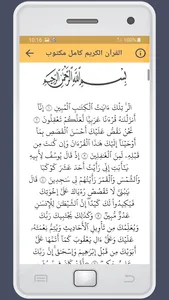 16:18
القرآن الكريم كامل مكتوب
بِسْمِ اللَّهِ الرَّحْمَٰنِ الرَّحِيمِ
الٓر تِلْكَ ءَايَٰتُ ٱلْكِتَٰبِ ٱلْمُبِينِ ۝١ إِنَّآ
أَنزَلْنَٰهُ قُرْءَٰنًا عَرَبِيًّا لَّعَلَّكُمْ تَعْقِلُونَ ۝٢
نَحْنُ نَقُصُّ عَلَيْكَ أَحْسَنَ ٱلْقَصَصِ بِمَآ
أَوْحَيْنَآ إِلَيْكَ هَٰذَا ٱلْقُرْءَانَ وَإِن كُنتَ مِن
قَبْلِهِۦ لَمِنَ ٱلْغَٰفِلِينَ ۝٣ إِذْ قَالَ يُوسُفُ لِأَبِيهِ
يَٰٓأَبَتِ إِنِّي رَأَيْتُ أَحَدَ عَشَرَ كَوْكَبًا
وَٱلشَّمْسَ وَٱلْقَمَرَ رَأَيْتُهُمْ لِي سَٰجِدِينَ ۝٤
قَالَ يَٰبُنَيَّ لَا تَقْصُصْ رُءْيَاكَ عَلَىٰٓ إِخْوَتِكَ
فَيَكِيدُوا۟ لَكَ كَيْدًا إِنَّ ٱلشَّيْطَٰنَ لِلْإِنسَٰنِ
عَدُوٌّ مُّبِينٌ ۝٥ وَكَذَٰلِكَ يَجْتَبِيكَ رَبُّكَ
وَيُعَلِّمُكَ مِن تَأْوِيلِ ٱلْأَحَادِيثِ وَيُتِمُّ نِعْمَتَهُۥ
عَلَيْكَ وَعَلَىٰٓ ءَالِ يَعْقُوبَ كَمَآ أَتَمَّهَا عَلَىٰٓ
أَبَوَيْكَ مِن قَبْلُ إِبْرَٰهِيمَ وَإِسْحَٰقَ إِنَّ رَبَّكَ